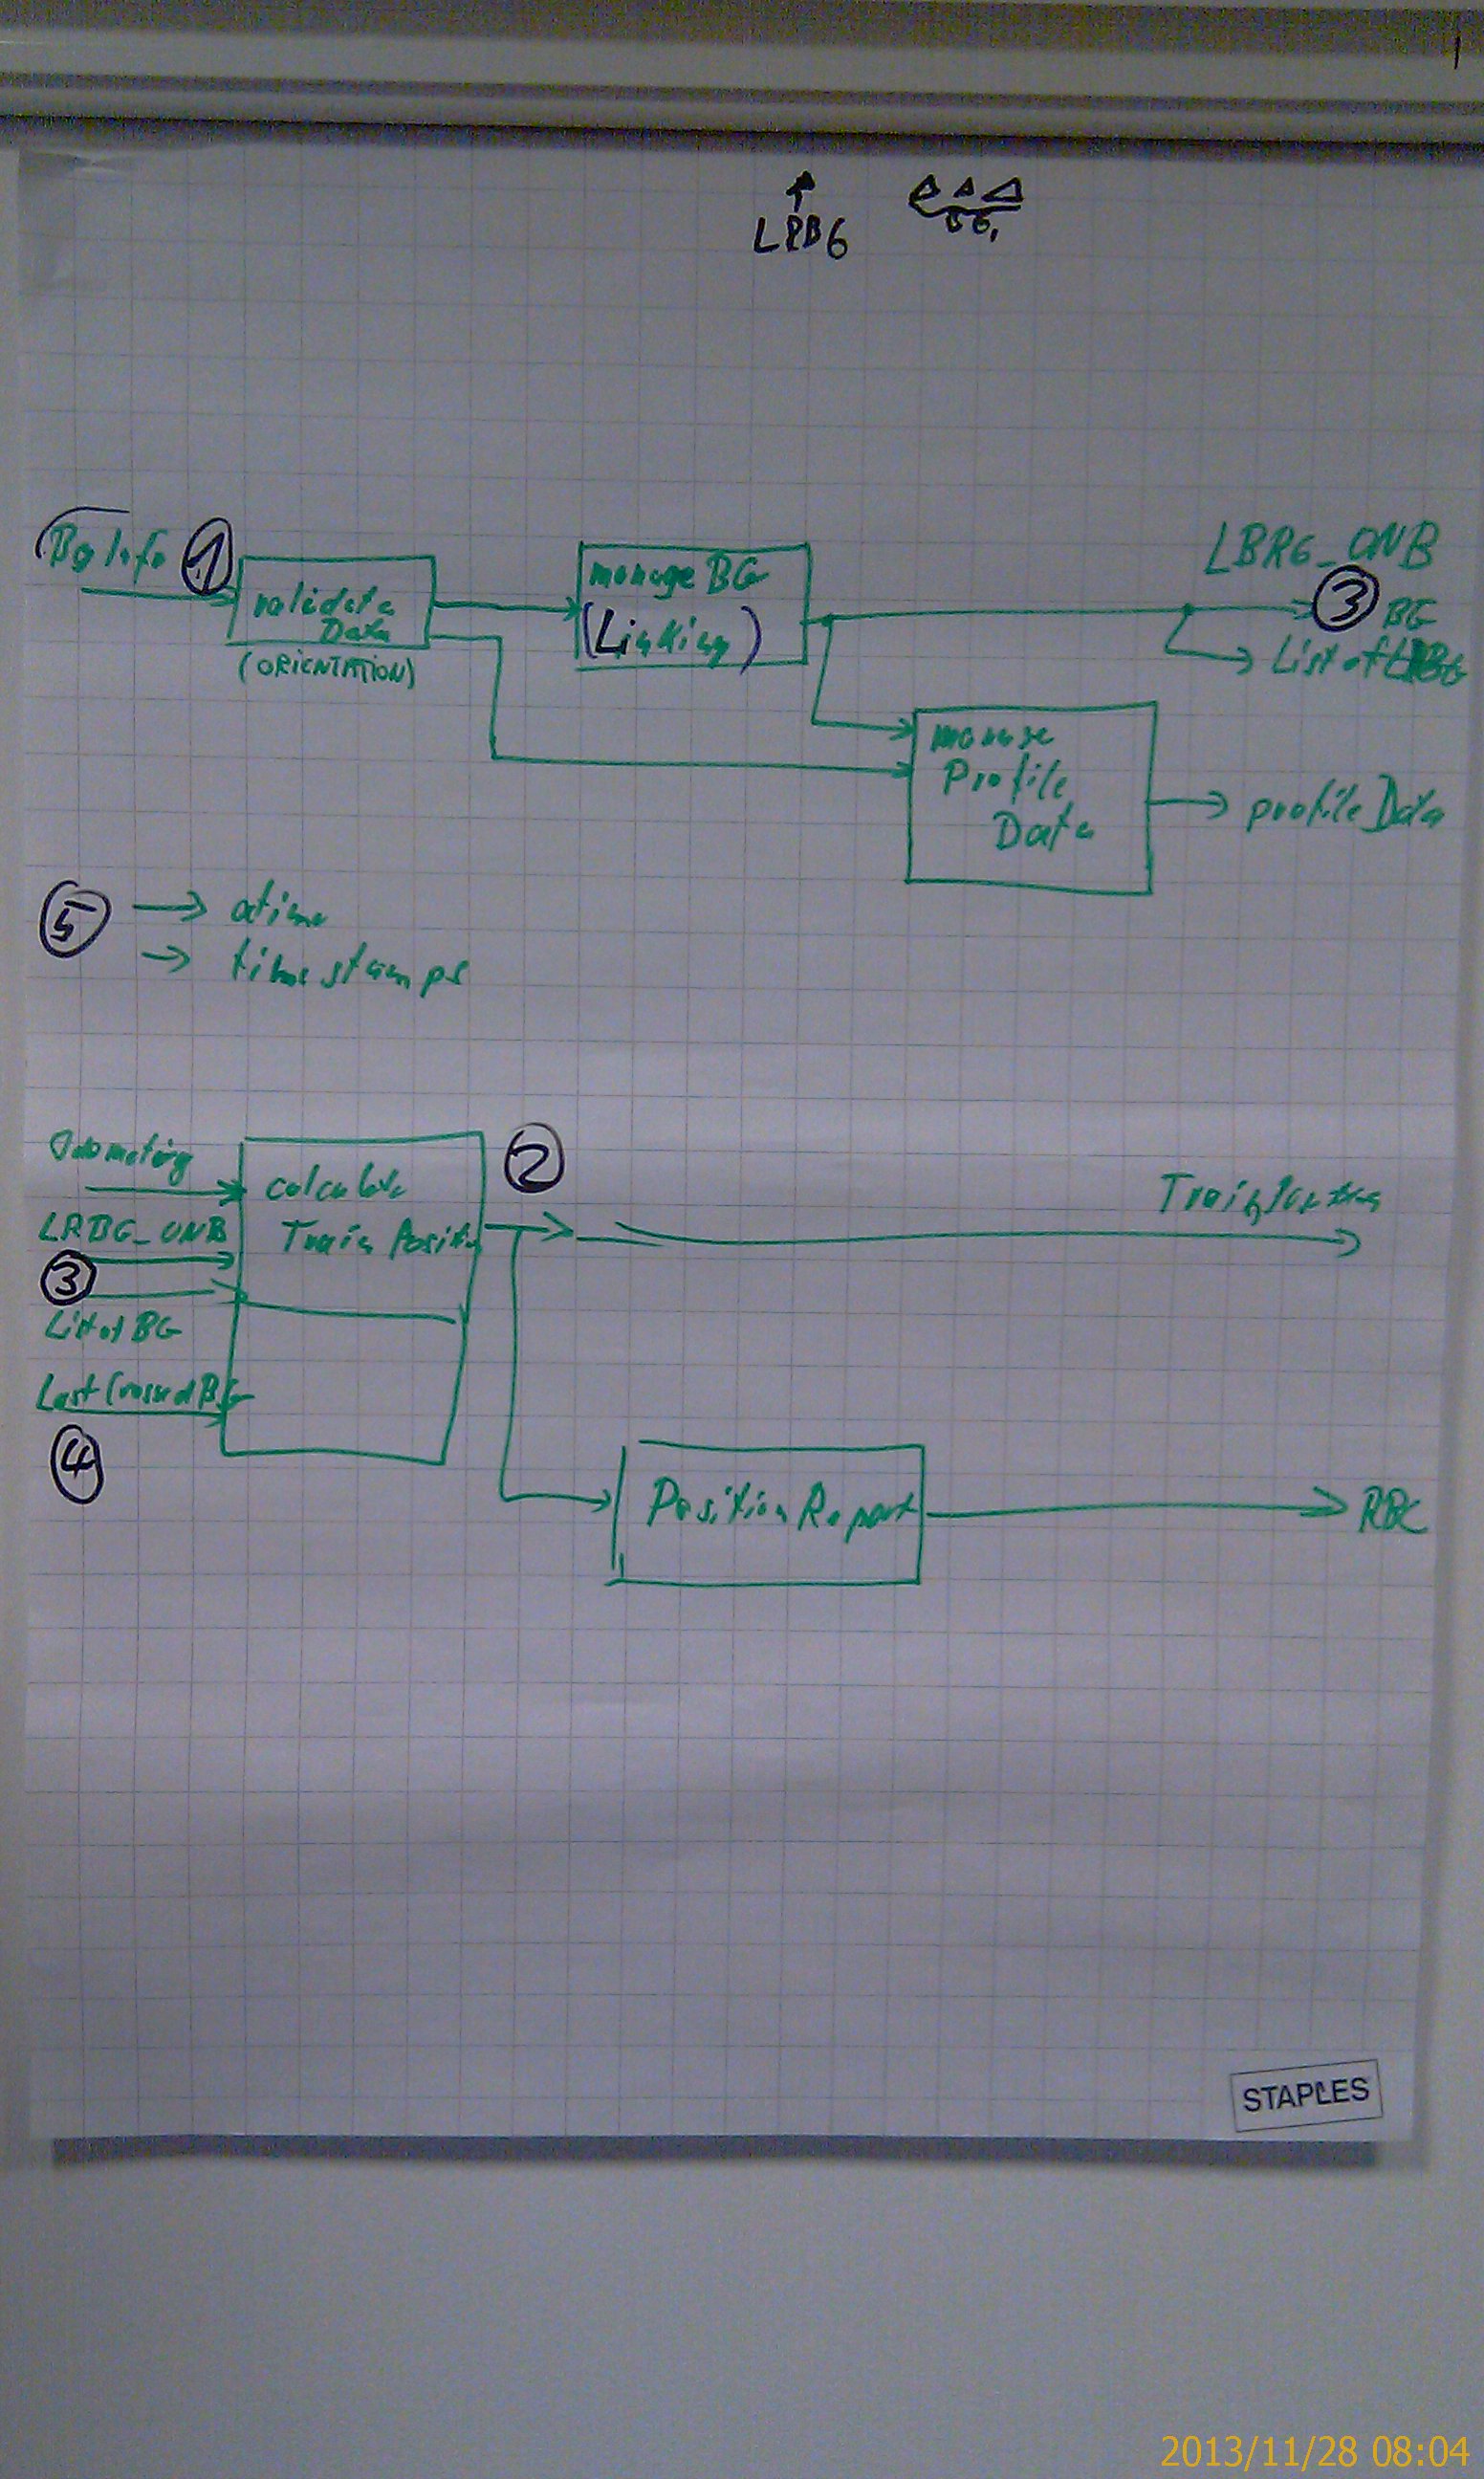 LRBG
BG,
Bg Info
1
validate
Data
(ORIENTATION)
manage BG
(Linking)
LBRG_ONB
3 BG
List of LRBG
manage
Profile
Data
profile Data
5
timestamps
Odometry
LRBG_ONB
3
List of BG
Last Crossed BG
4
calculate
Train Position
2
Train Position
Position Report
RBC
STAPLES
2013/11/28 08:04